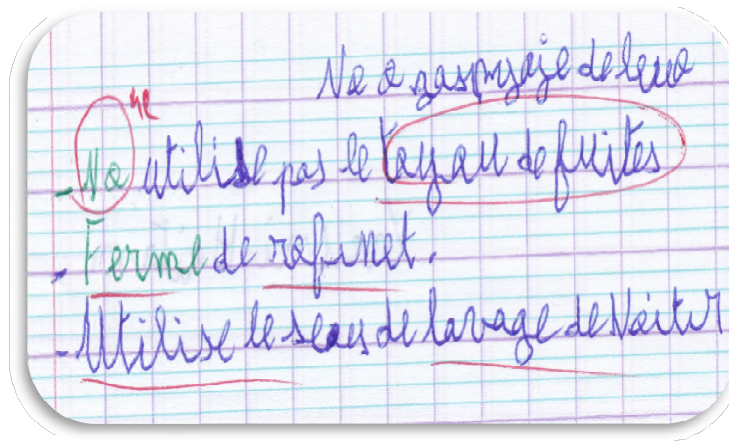 No a gaspyaje de leua
ne
- No utilise pas le toyau de fuites
- Ferme de rofinet.
- Utilise le seau de lavage de Voitur